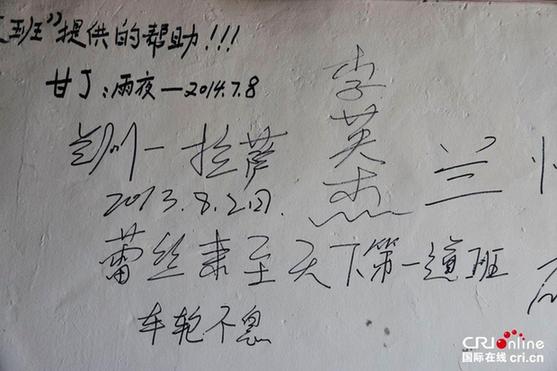 班”提供的帮助!!!
甘丁:雨夜—2014.7.8
李英杰
兰州—拉萨
2013.8.2日.
兰
蕾丝来至天下第一道班
车轮不息
CRIonline
国际在线 cri.cn